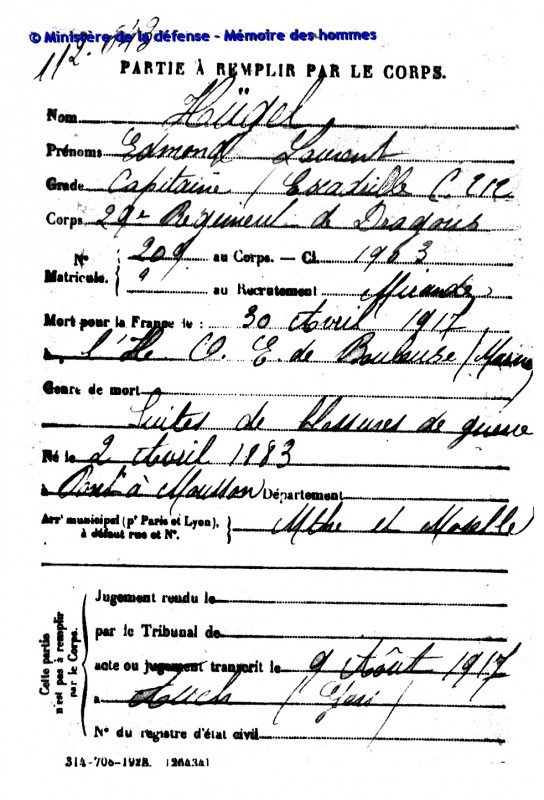 © Ministère de la défense - Mémoire des hommes
PARTIE À REMPLIR PAR LE CORPS.
Nom Hügel
Prénoms Edmond Laurent
Grade Capitaine / Escadrille C 212
Corps 29e Régiment de Dragons
N° Matricule. { 209 au Corps. — Cl. 1903
9 au Recrutement Mirande
Mort pour la France le : 30 Avril 1917
à l'H. O. E. de (Marne)
Genre de mort
Suites de blessures de guerre
Né le 2 Avril 1883
à Pont à Mousson Département
Arrt municipal (pr Paris et Lyon), à défaut rue et N°. } Mthe et Moselle
Cette partie n'est pas à remplir par le Corps. {
Jugement rendu le
par le Tribunal de
acte ou jugement transcrit le 9 Août 1917
à Auch (Gers)
N° du registre d'état civil
314-708-1928. [26434]